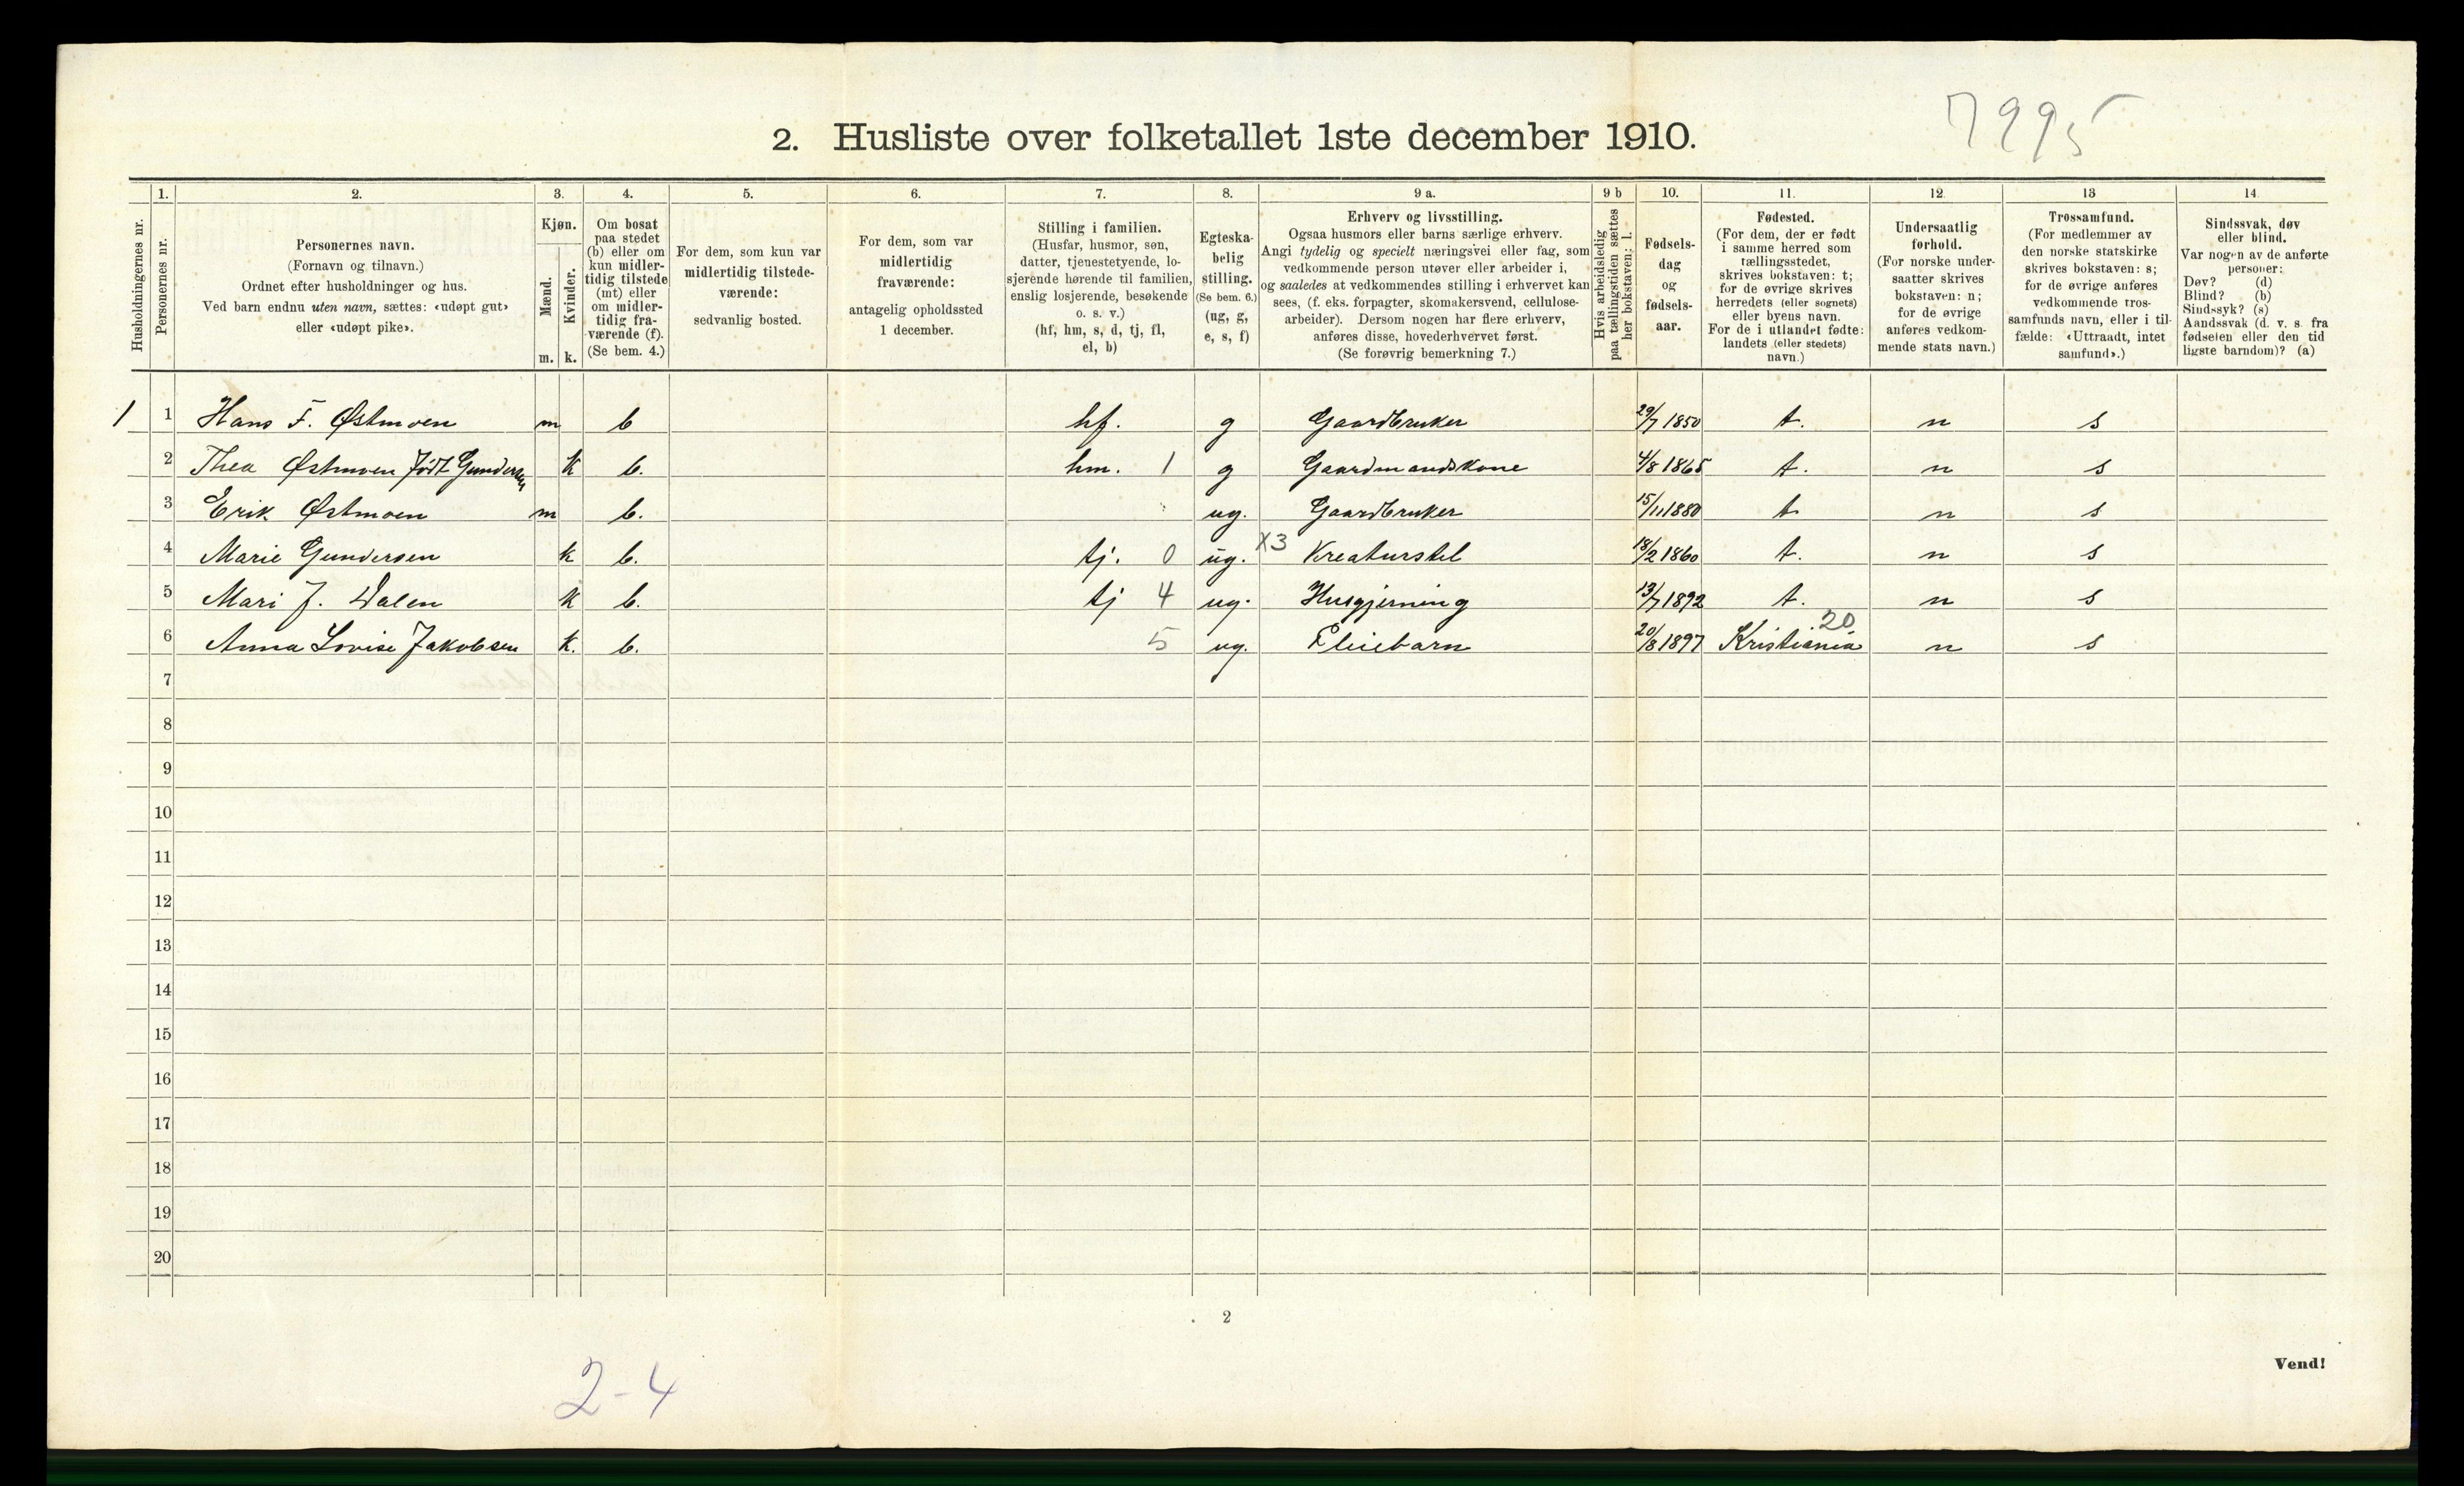 7995
2. Husliste over folketallet 1ste december 1910.
1. 2. 3. 4. 5. 6. 7. 8. 9 a. 9 b 10. 11. 12. 13 14
Husholdningernes nr.
Personernes nr.
Personernes navn.
(Fornavn og tilnavn.)
Ordnet efter husholdninger og hus.
Ved barn endnu uten navn, sættes: «udøpt gut»
eller «udøpt pike».
Kjøn.
Mænd.
Kvinder.
m. k.
Om bosat
paa stedet
(b) eller om
kun midler-
tidig tilstede
(mt) eller
om midler-
tidig fra-
værende (f).
(Se bem. 4.)
For dem, som kun var
midlertidig tilstede-
værende:
sedvanlig bosted.
For dem, som var
midlertidig
fraværende:
antagelig opholdssted
1 december.
Stilling i familien.
(Husfar, husmor, søn,
datter, tjenestetyende, lo-
sjerende hørende til familien,
enslig losjerende, besøkende
o. s. v.)
(hf, hm, s, d, tj, fl,
el, b)
Egteska-
belig
stilling.
(Se bem. 6.)
(ug, g,
e, s, f)
Erhverv og livsstilling.
Ogsaa husmors eller barns særlige erhverv.
Angi tydelig og specielt næringsvei eller fag, som
vedkommende person utøver eller arbeider i,
og saaledes at vedkommendes stilling i erhvervet kan
sees, (f. eks. forpagter, skomakersvend, cellulose-
arbeider). Dersom nogen har flere erhverv,
anføres disse, hovederhvervet først.
(Se forøvrig bemerkning 7.)
Hvis arbeidsledig
paa tællingstiden sættes
her bokstaven: l.
Fødsels-
dag
og
fødsels-
aar.
Fødested.
(For dem, der er født
i samme herred som
tællingsstedet,
skrives bokstaven: t;
for de øvrige skrives
herredets (eller sognets)
eller byens navn.
For de i utlandet fødte:
landets (eller stedets)
navn.)
Undersaatlig
forhold.
(For norske under-
saatter skrives
bokstaven: n;
for de øvrige
anføres vedkom-
mende stats navn.)
Trossamfund.
(For medlemmer av
den norske statskirke
skrives bokstaven: s;
for de øvrige anføres
vedkommende tros-
samfunds navn, eller i til-
fælde: «Uttraadt, intet
samfund».)
Sindssvak, døv
eller blind.
Var nogen av de anførte
personer:
Døv? (d)
Blind? (b)
Sindssyk? (s)
Aandssvak (d. v. s. fra
fødselen eller den tid
ligste barndom)? (a)
1 1 Hans F. Østmoen m b hf. g Gaardbruker 29/7 1850 t. n s
2 Thea Østmoen født Gundersen k b. hm. 1 g Gaardmandskone 4/8 1865 t. n s
3 Erik Østmoen m b. ug. Gaardbruker 15/11 1880 t n s
4 Marie Gundersen k b. tj. 0 ug. X3 Kreaturstel 18/2 1860 t. n s
5 Mari J. Dalen k b. tj 4 ug. Husgjerning 13/7 1892 t. n s
6 Anna Lovise Jakobsen k. b. 5 ug. Pleiebarn 20/8 1897 Kristiania 20 n s
7
8
9
10
11
12
13
14
15
16
17
18
19
20
2
Vend!
2-4